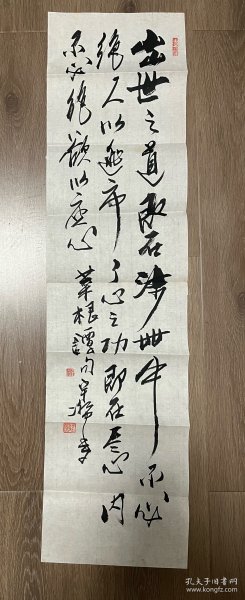 出世之道即在涉世中不必
绝人以逃世了心之功即在尽心内
不必绝欲以灰心
菜根谭句
孔夫子旧书网